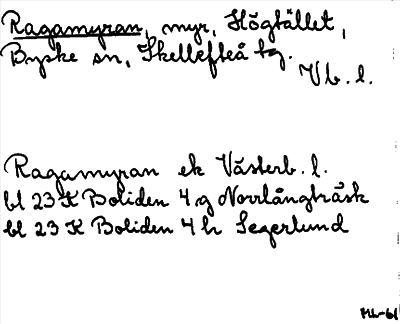 Ragamyran, myr, Högfället,
Byske sn, Skellefteå tg.
Vb. l.
Ragamyran ek Västerb. l.
bl 23 K Boliden 4 g Norrlångträsk
bl 23 K Boliden 4 h Segerlund
ML-61